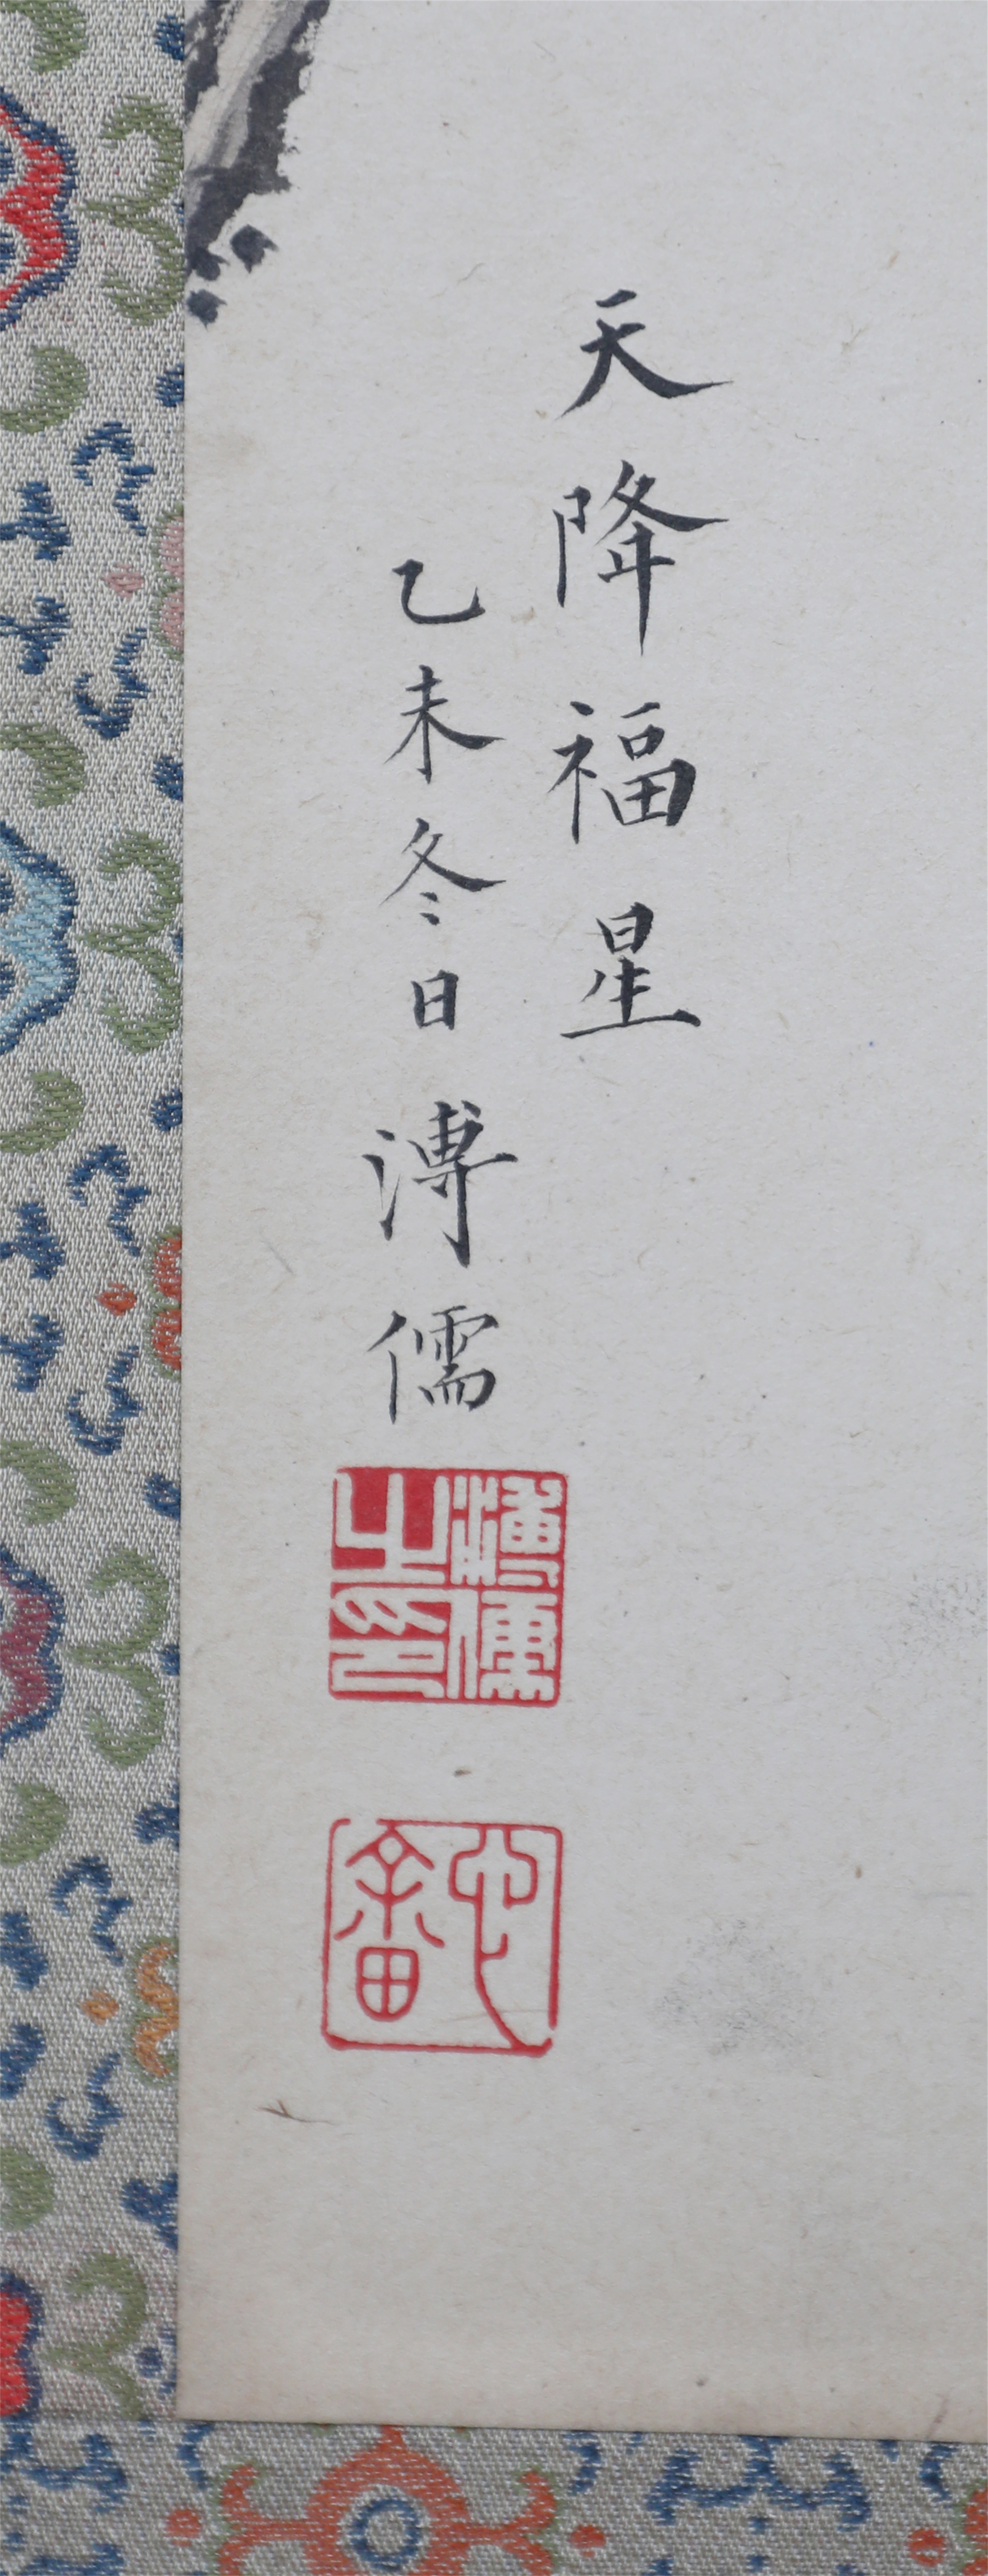 天降福星
乙未冬日溥儒
溥儒之印
心畬